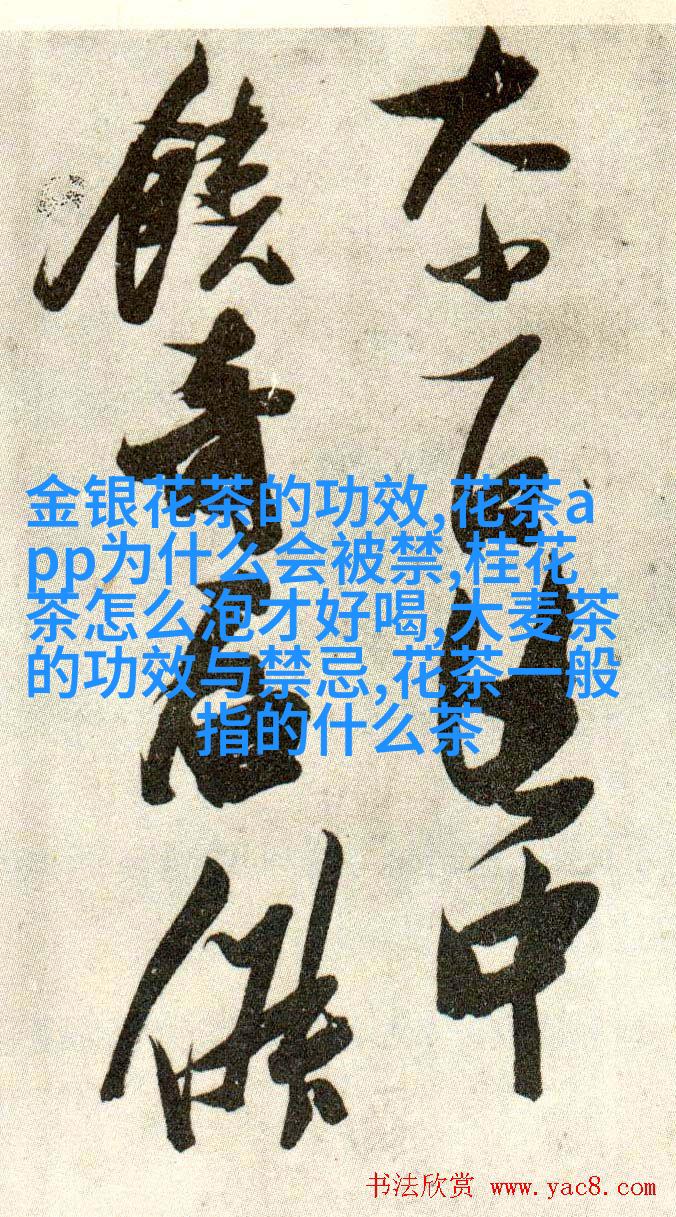 大小百中
饒奇
金银花茶的功效,花茶a
pp为什么会被禁,桂花
茶怎么泡才好喝,大麦茶
的功效与禁忌,花茶一般
指的什么茶
书法欣赏 www.yac8.com